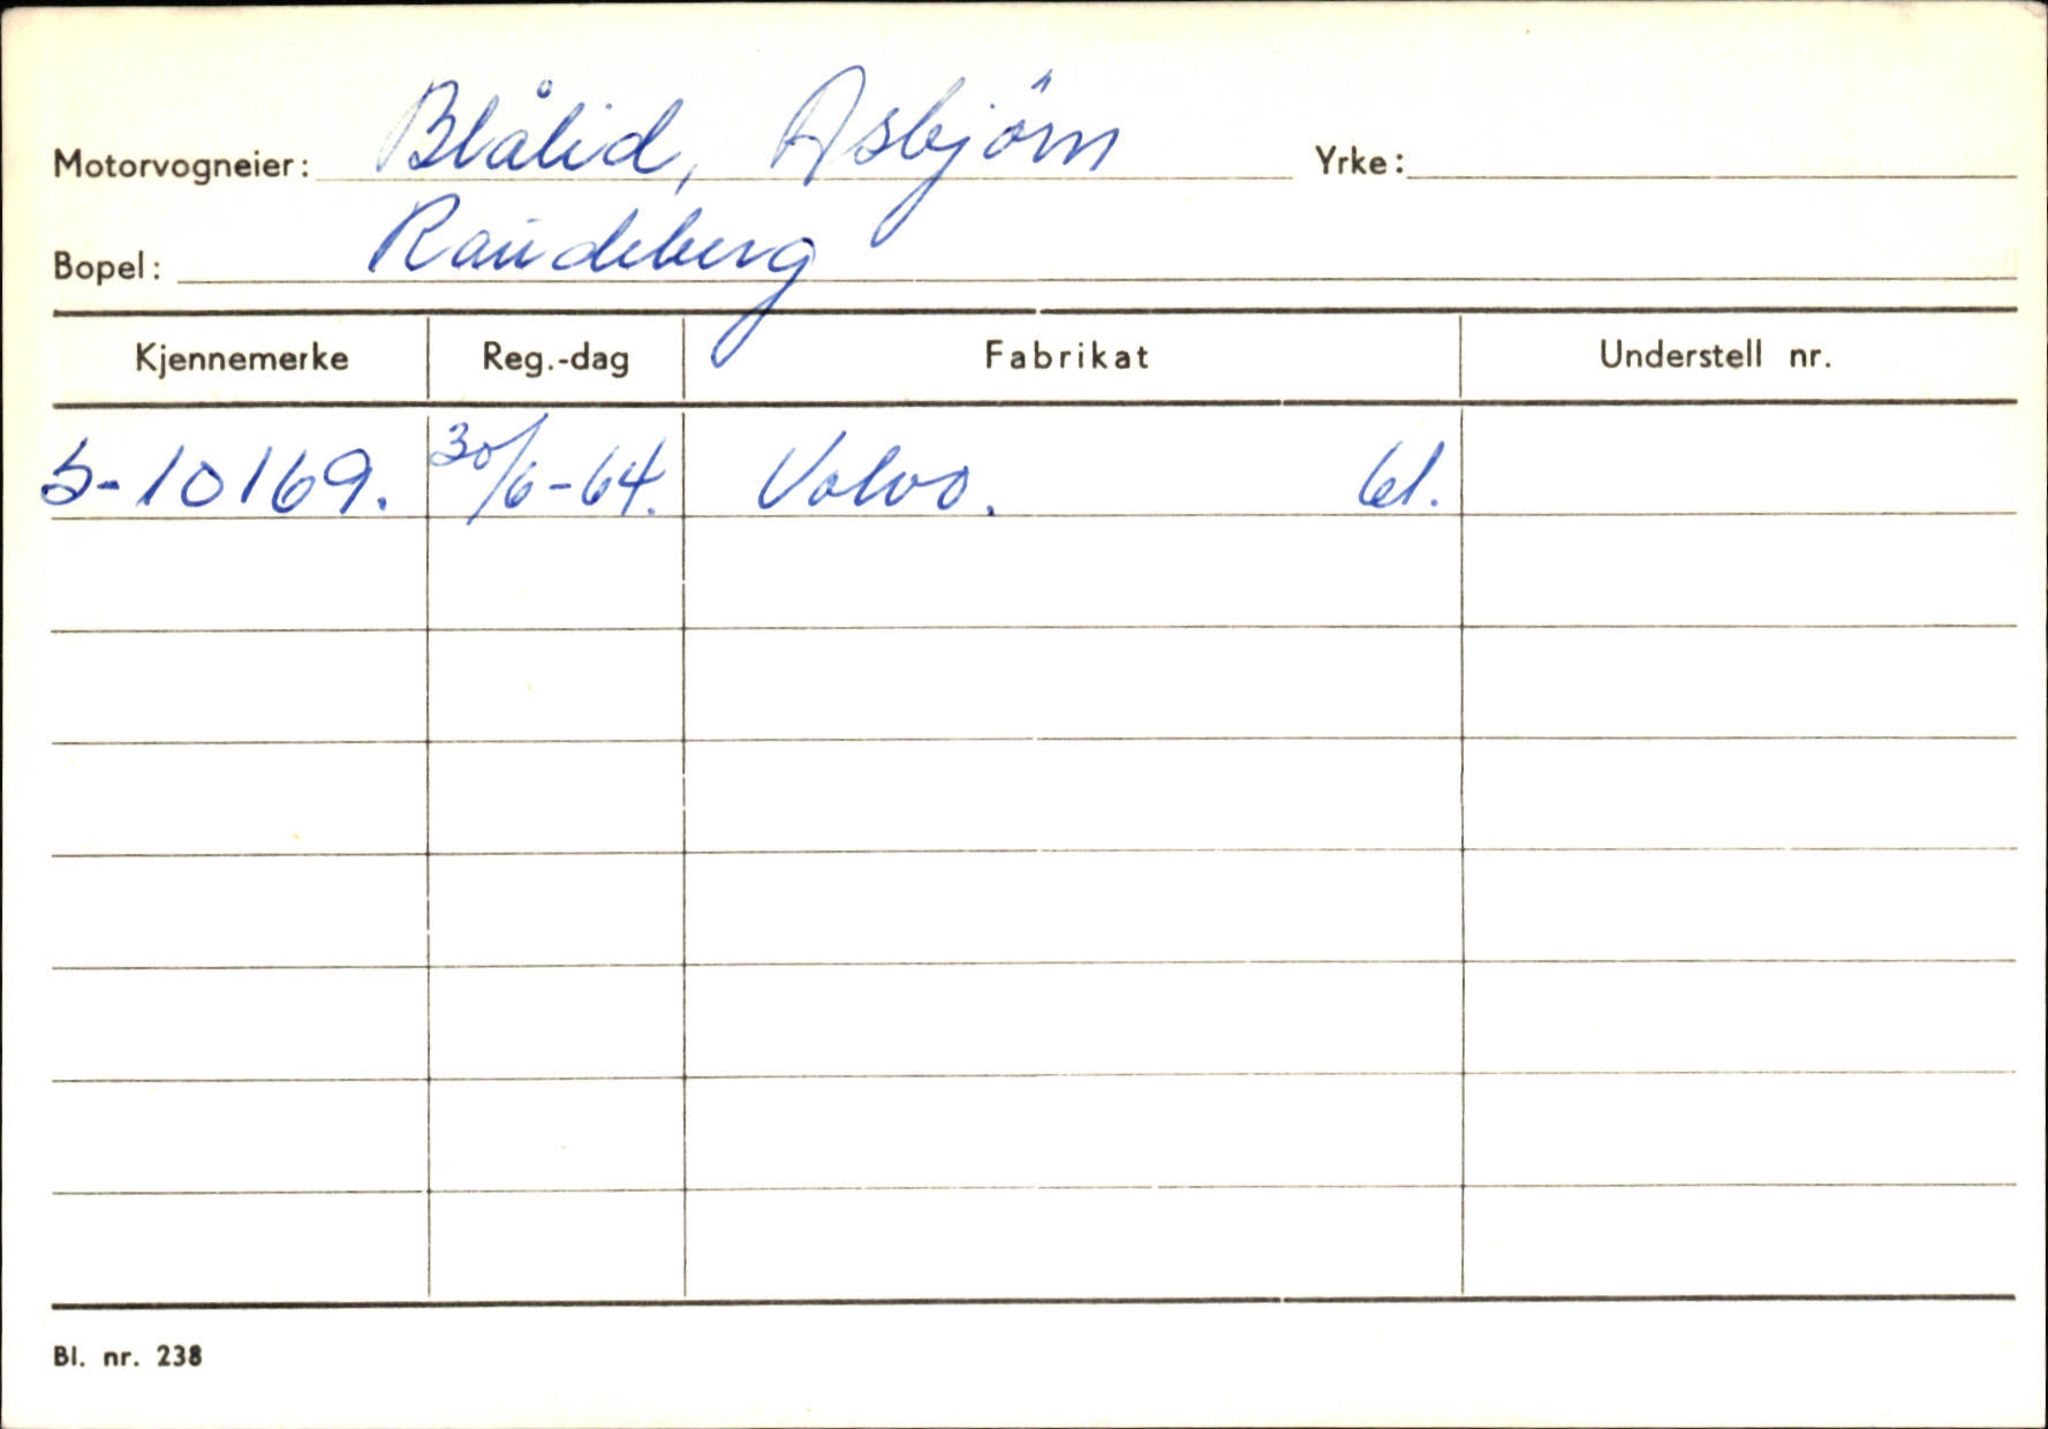 Motorvogneier: Blålid, Asbjörn Yrke:
Bopel: Raudeberg
Kjennemerke Reg.-dag Fabrikat Understell nr.
S-10169. 30/6-64. Volvo. 61.
Bl. nr. 238